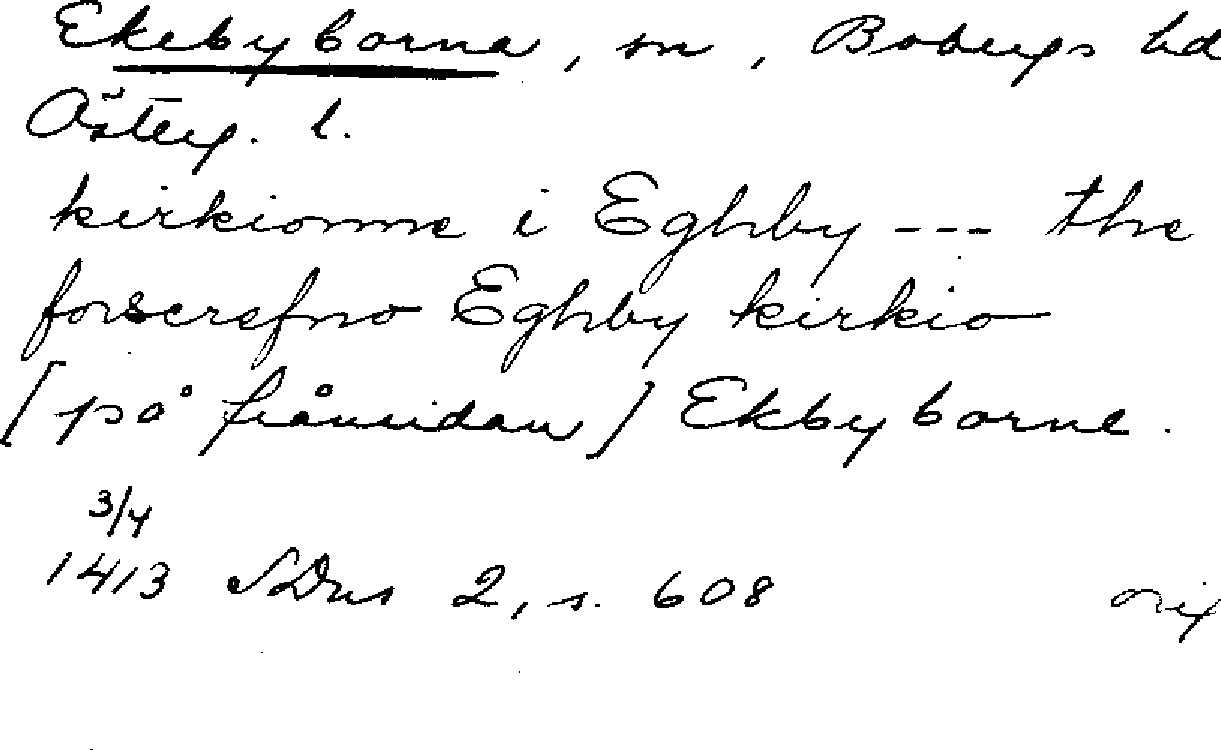 Ekebyborna, sn, Bobergs hd
Österg. l.
kirkionne i Eghby --- the
forscrefno Eghby kirkio
[på frånsidan] Ekbyborne.
3/4
1413 SDns 2, s. 608 orig